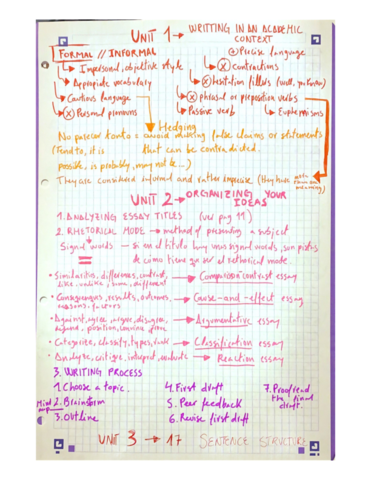 UNIT 1 → WRITTING IN AN ACADEMIC CONTEXT
FORMAL // INFORMAL
⊕ Precise language
↳ Impersonal, objective style
↳ ⊗ contractions
↳ Appropiate vocabulary
↳ ⊗ hesitation fillers (well, you know)
↳ Cautious language
↳ ⊗ phrasal or preposition verbs
↳ ⊗ Personal pronouns
↳ Passive verb
↳ Euphemisms
Hedging
No parecer tonto = avoid making false claims or statements
(Tend to, it is that can be contradicted.
possible, is probably, may not be...)
They are considered informal and rather imprecise (they have more than one meaning)
UNIT 2 → ORGANIZING YOUR IDEAS
1. ANALYZING ESSAY TITLES (ver pag 11)
2. RHETORICAL MODE → method of presenting a subject
Signal words → si en el titulo hay unas signal words, son pistas
de cómo tiene que ser el rethorical mode.
• Similarities, differences, contrast, like, unlike, same, different → Comparison/contrast essay
• Consequences, results, outcomes, reasons, factors → Cause-and-effect essay
• Against, agree, argue, disagree, defend, position, convince → Argumentative essay
• Categorize, classify, types, → Classification essay
• Analyze, critique, interpret, evaluate → Reaction essay
3. WRITING PROCESS
1. Choose a topic.
4. First draft
7. Proofread the final draft.
Mind map 2. Brainstorm
5. Peer feedback
3. Outline
6. Revise first draft
UNIT 3 → 17 SENTENCE STRUCTURE